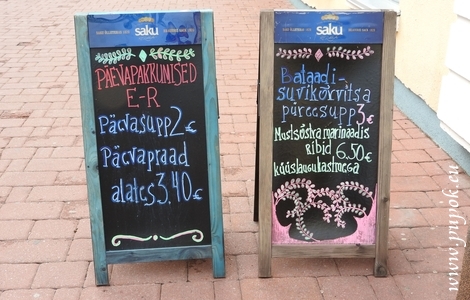 saku
PÄEVAPAKKUMISED
E-R
Päevasupp 2€
Päevapraad
alates 3.40€
saku
Bataadi-
suvikõrvitsa
püreesupp 3€
Mustsõstra marinaadis
ribid 6.50€
küüslaugukastmega
www.fnipok.eu